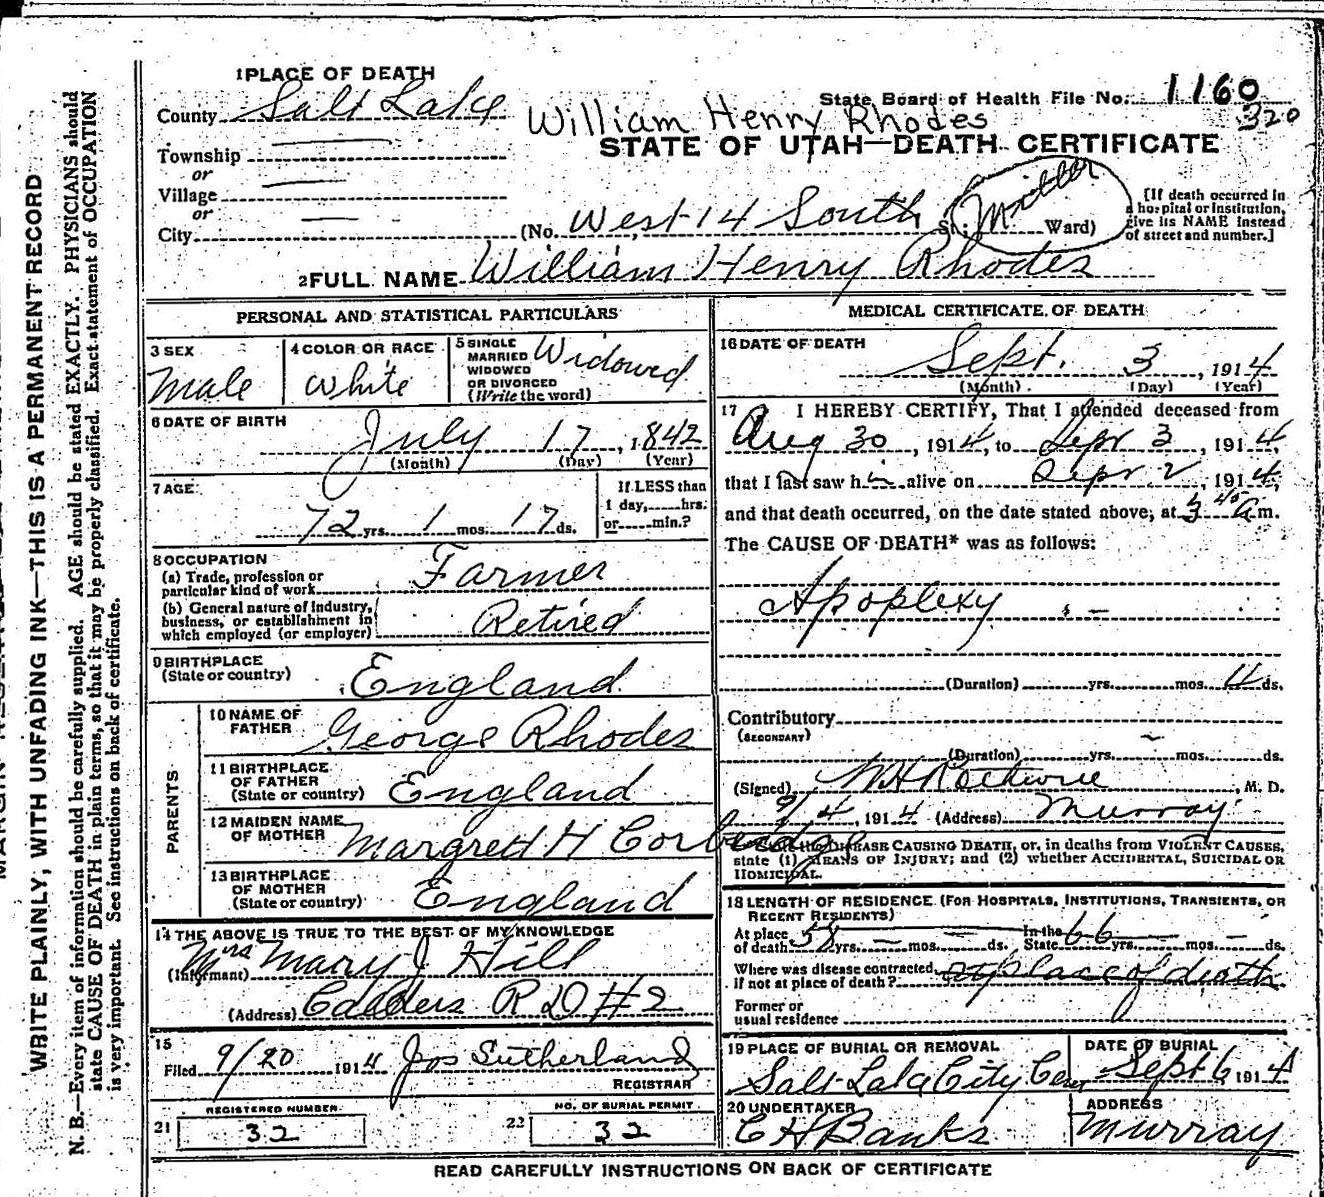 1 PLACE OF DEATH
County Salt Lake
State Board of Health File No. 1160
320
William Henry Rhodes
STATE OF UTAH—DEATH CERTIFICATE
Township
or
Village
or
City
(No. West 14 South St.; Miller Ward)
[If death occurred in a hospital or institution, give its NAME instead of street and number.]
2 FULL NAME William Henry Rhodes
PERSONAL AND STATISTICAL PARTICULARS
3 SEX
Male
4 COLOR OR RACE
White
5 SINGLE
MARRIED
WIDOWED
OR DIVORCED
(Write the word)
Widowed
6 DATE OF BIRTH
July 17, 1842
(Month) (Day) (Year)
7 AGE
72 yrs. 1 mos. 17 ds.
If LESS than
1 day, hrs.
or min.?
8 OCCUPATION
(a) Trade, profession or
particular kind of work
Farmer
(b) General nature of Industry,
business, or establishment in
which employed (or employer)
Retired
9 BIRTHPLACE
(State or country)
England
PARENTS
10 NAME OF
FATHER
George Rhodes
11 BIRTHPLACE
OF FATHER
(State or country)
England
12 MAIDEN NAME
OF MOTHER
Margrett H
13 BIRTHPLACE
OF MOTHER
(State or country)
England
14 THE ABOVE IS TRUE TO THE BEST OF MY KNOWLEDGE
(Informant) Mrs Mary J Hill
(Address) R D #2
15
Filed 9/20 1914 Jos Sutherland
REGISTRAR
REGISTERED NUMBER
21 32
NO. OF BURIAL PERMIT
22 32
MEDICAL CERTIFICATE OF DEATH
16 DATE OF DEATH
Sept. 3, 1914
(Month) (Day) (Year)
17 I HEREBY CERTIFY, That I attended deceased from
Aug 30, 1914, to Sepr 3, 1914,
that I last saw h alive on Sepr 2, 1914,
and that death occurred, on the date stated above, at 3 45 a m.
The CAUSE OF DEATH* was as follows:
Apoplexy
(Duration) yrs. mos. 4 ds.
Contributory
(SECONDARY)
(Duration) yrs. mos. ds.
(Signed) W H , M. D.
9/4, 1914 (Address) Murray
DISEASE CAUSING DEATH, or, in deaths from VIOLENT CAUSES,
state (1) MEANS OF INJURY; and (2) whether ACCIDENTAL, SUICIDAL OR
HOMICIDAL.
18 LENGTH OF RESIDENCE (FOR HOSPITALS, INSTITUTIONS, TRANSIENTS, OR
RECENT RESIDENTS)
At place
of death 58 yrs. mos. ds. In the State 66 yrs. mos. ds.
Where was disease contracted,
if not at place of death? at place of death
Former or
usual residence
19 PLACE OF BURIAL OR REMOVAL
Salt Lake City Cem
DATE OF BURIAL
Sept 6 1914
20 UNDERTAKER
C H Banks
ADDRESS
Murray
READ CAREFULLY INSTRUCTIONS ON BACK OF CERTIFICATE
WRITE PLAINLY, WITH UNFADING INK—THIS IS A PERMANENT RECORD
N. B.—Every item of information should be carefully supplied. AGE should be stated EXACTLY. PHYSICIANS should
state CAUSE OF DEATH in plain terms, so that it may be properly classified. Exact statement of OCCUPATION
is very important. See instructions on back of certificate.